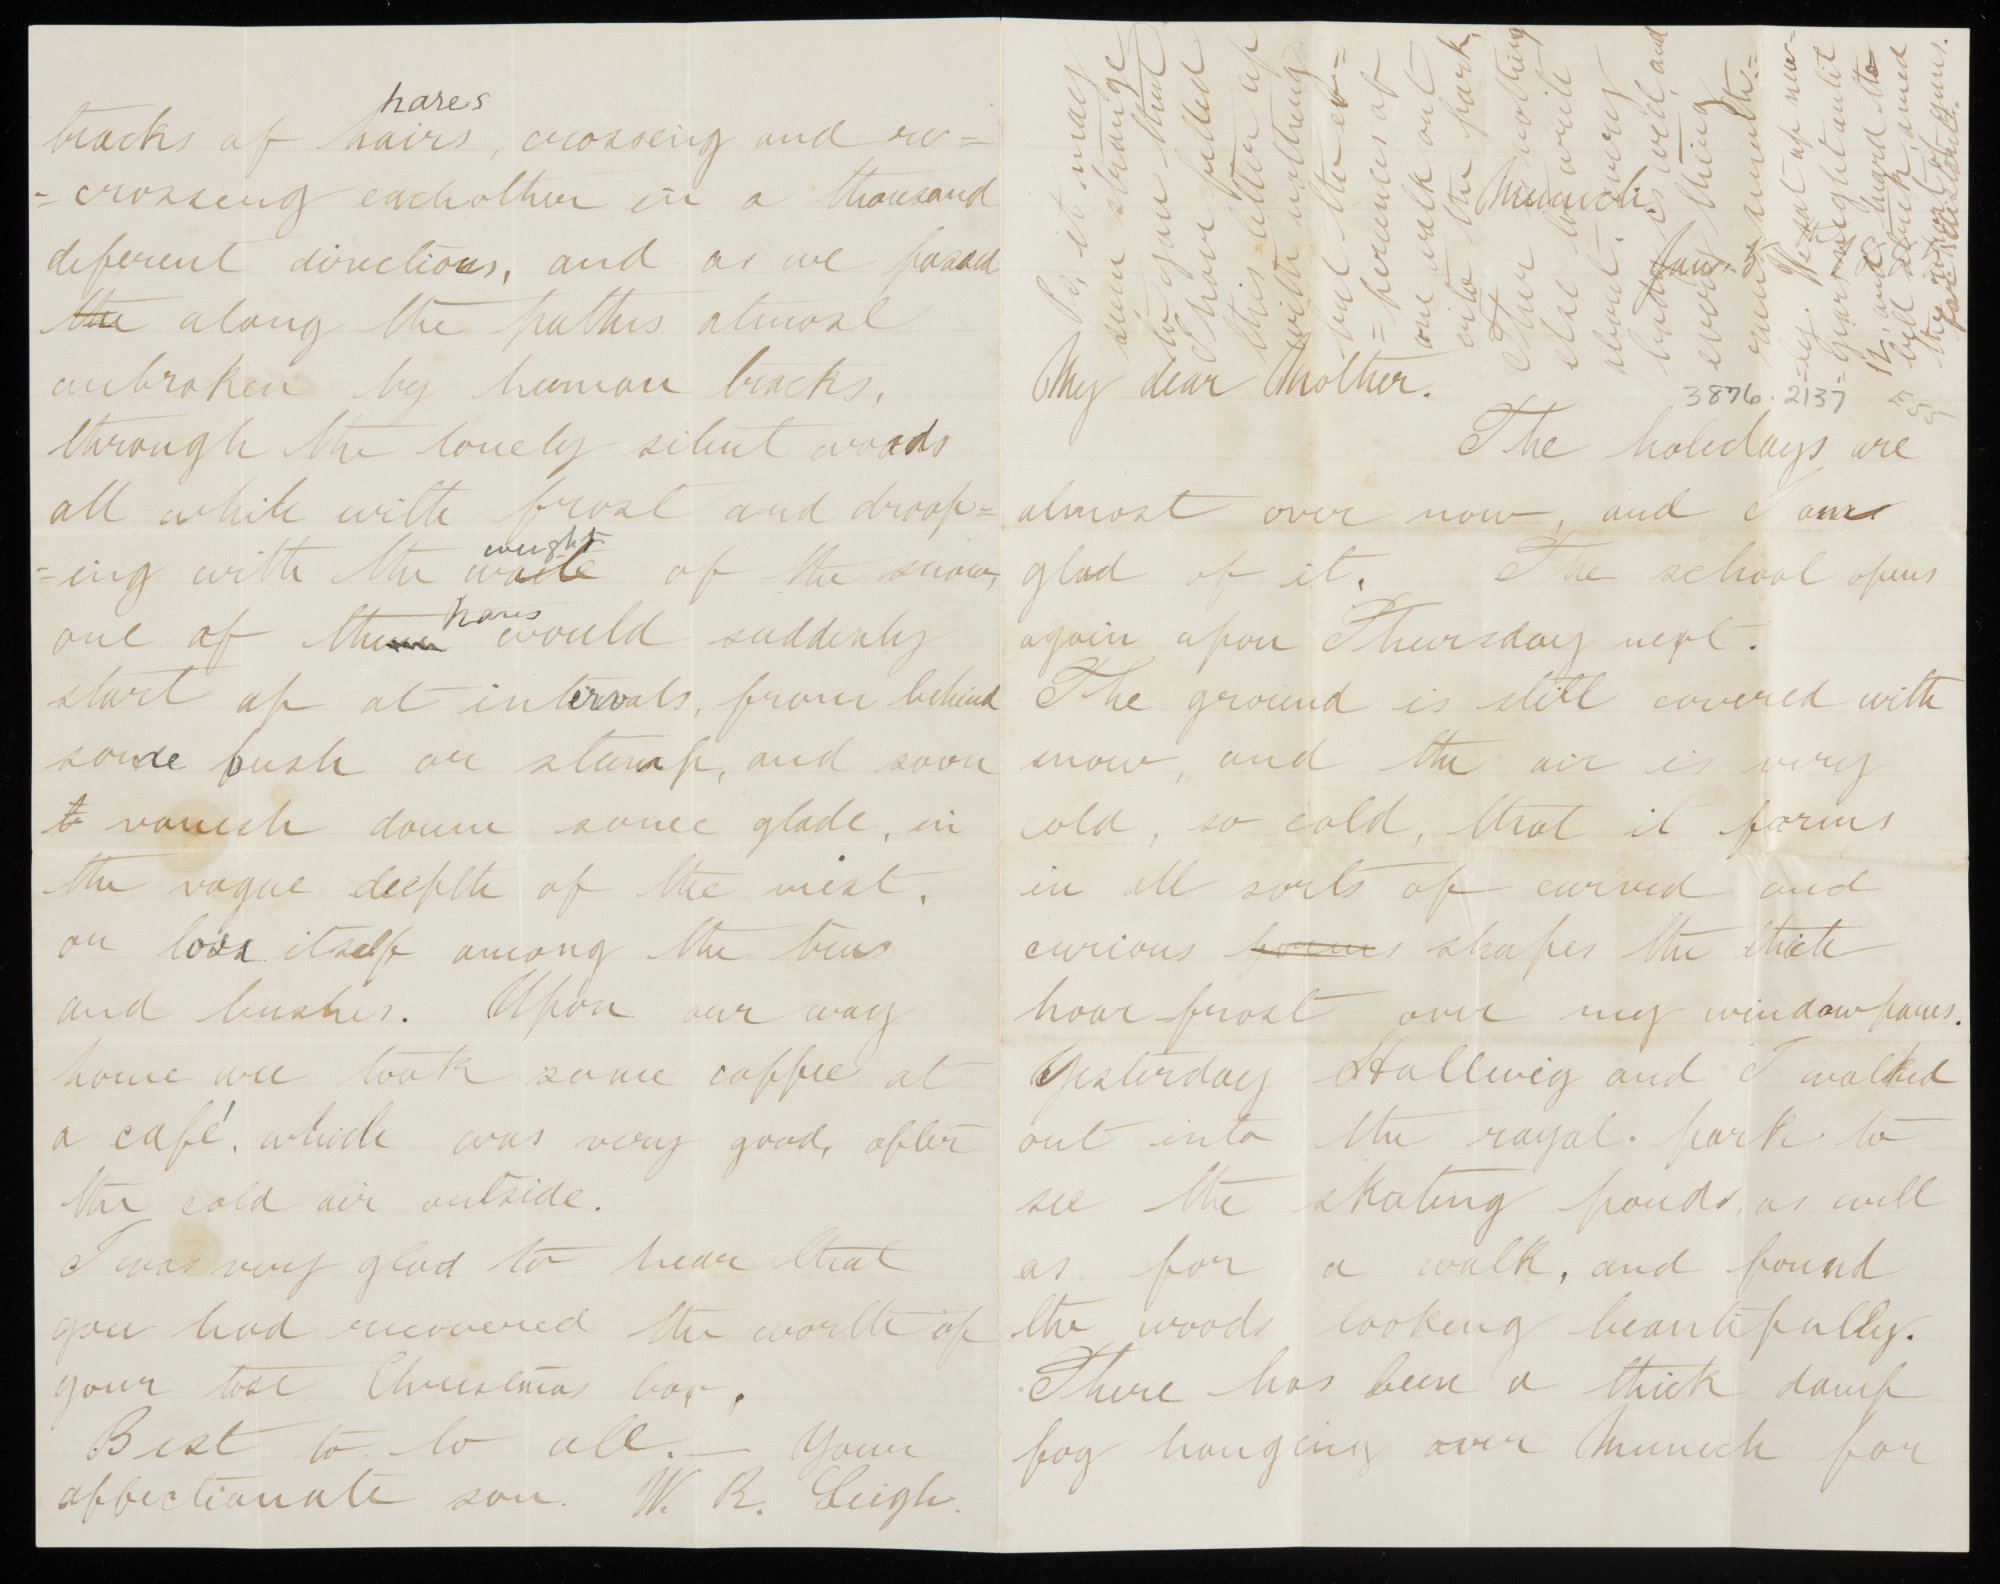 Munich.
Jan. 1
My dear Mother.
3876.2137
The holidays are
almost over now, and I am
glad of it. The school opens
again upon Thursday next.
The ground is still covered with
snow, and the air is very
cold, so cold, that it forms
in all sorts of curved and
curious forms shapes the thick
hoar-frost over my windowpanes.
Yesterday Hallwig and I walked
out into the royal park to
see the skating ponds, as well
as for a walk, and found
the woods looking beautifully.
There has been a thick damp
fog hanging over Munich for
hares
tracks of hairs, crossing and re=
=crossing eachother in a thousand
diferent directions, and as we passed
the along the paths almost
unbroken by human tracks,
through the lonely silent woods
all white with frost and droop=
weight
=ing with the waite of the snow,
hares
one of them would suddenly
start up at intervals, from behind
some bush or stump, and soon
to vanish down some glade, in
the vague deepth of the mist,
or loss itself among the trees
and bushes. Upon our way
home we took some coffee at
a café, which was very good, after
the cold air outside.
I was very glad to hear that
you had recovered the worth of
your lost Christmas box.
Best to to all.— Your
affectionate son. W. R. Leigh.
Ps, it may
seem strange
to you that
I have filled
this letter up
with nothing
but the ex=
=periences of
one walk out
into the park,
Their nothing
else to write
about. every
body is well, and
every thing
runs smooth=
=ly. We sat up new=
=years night until
12, and heard the
bell struck, amed
the report of guns.